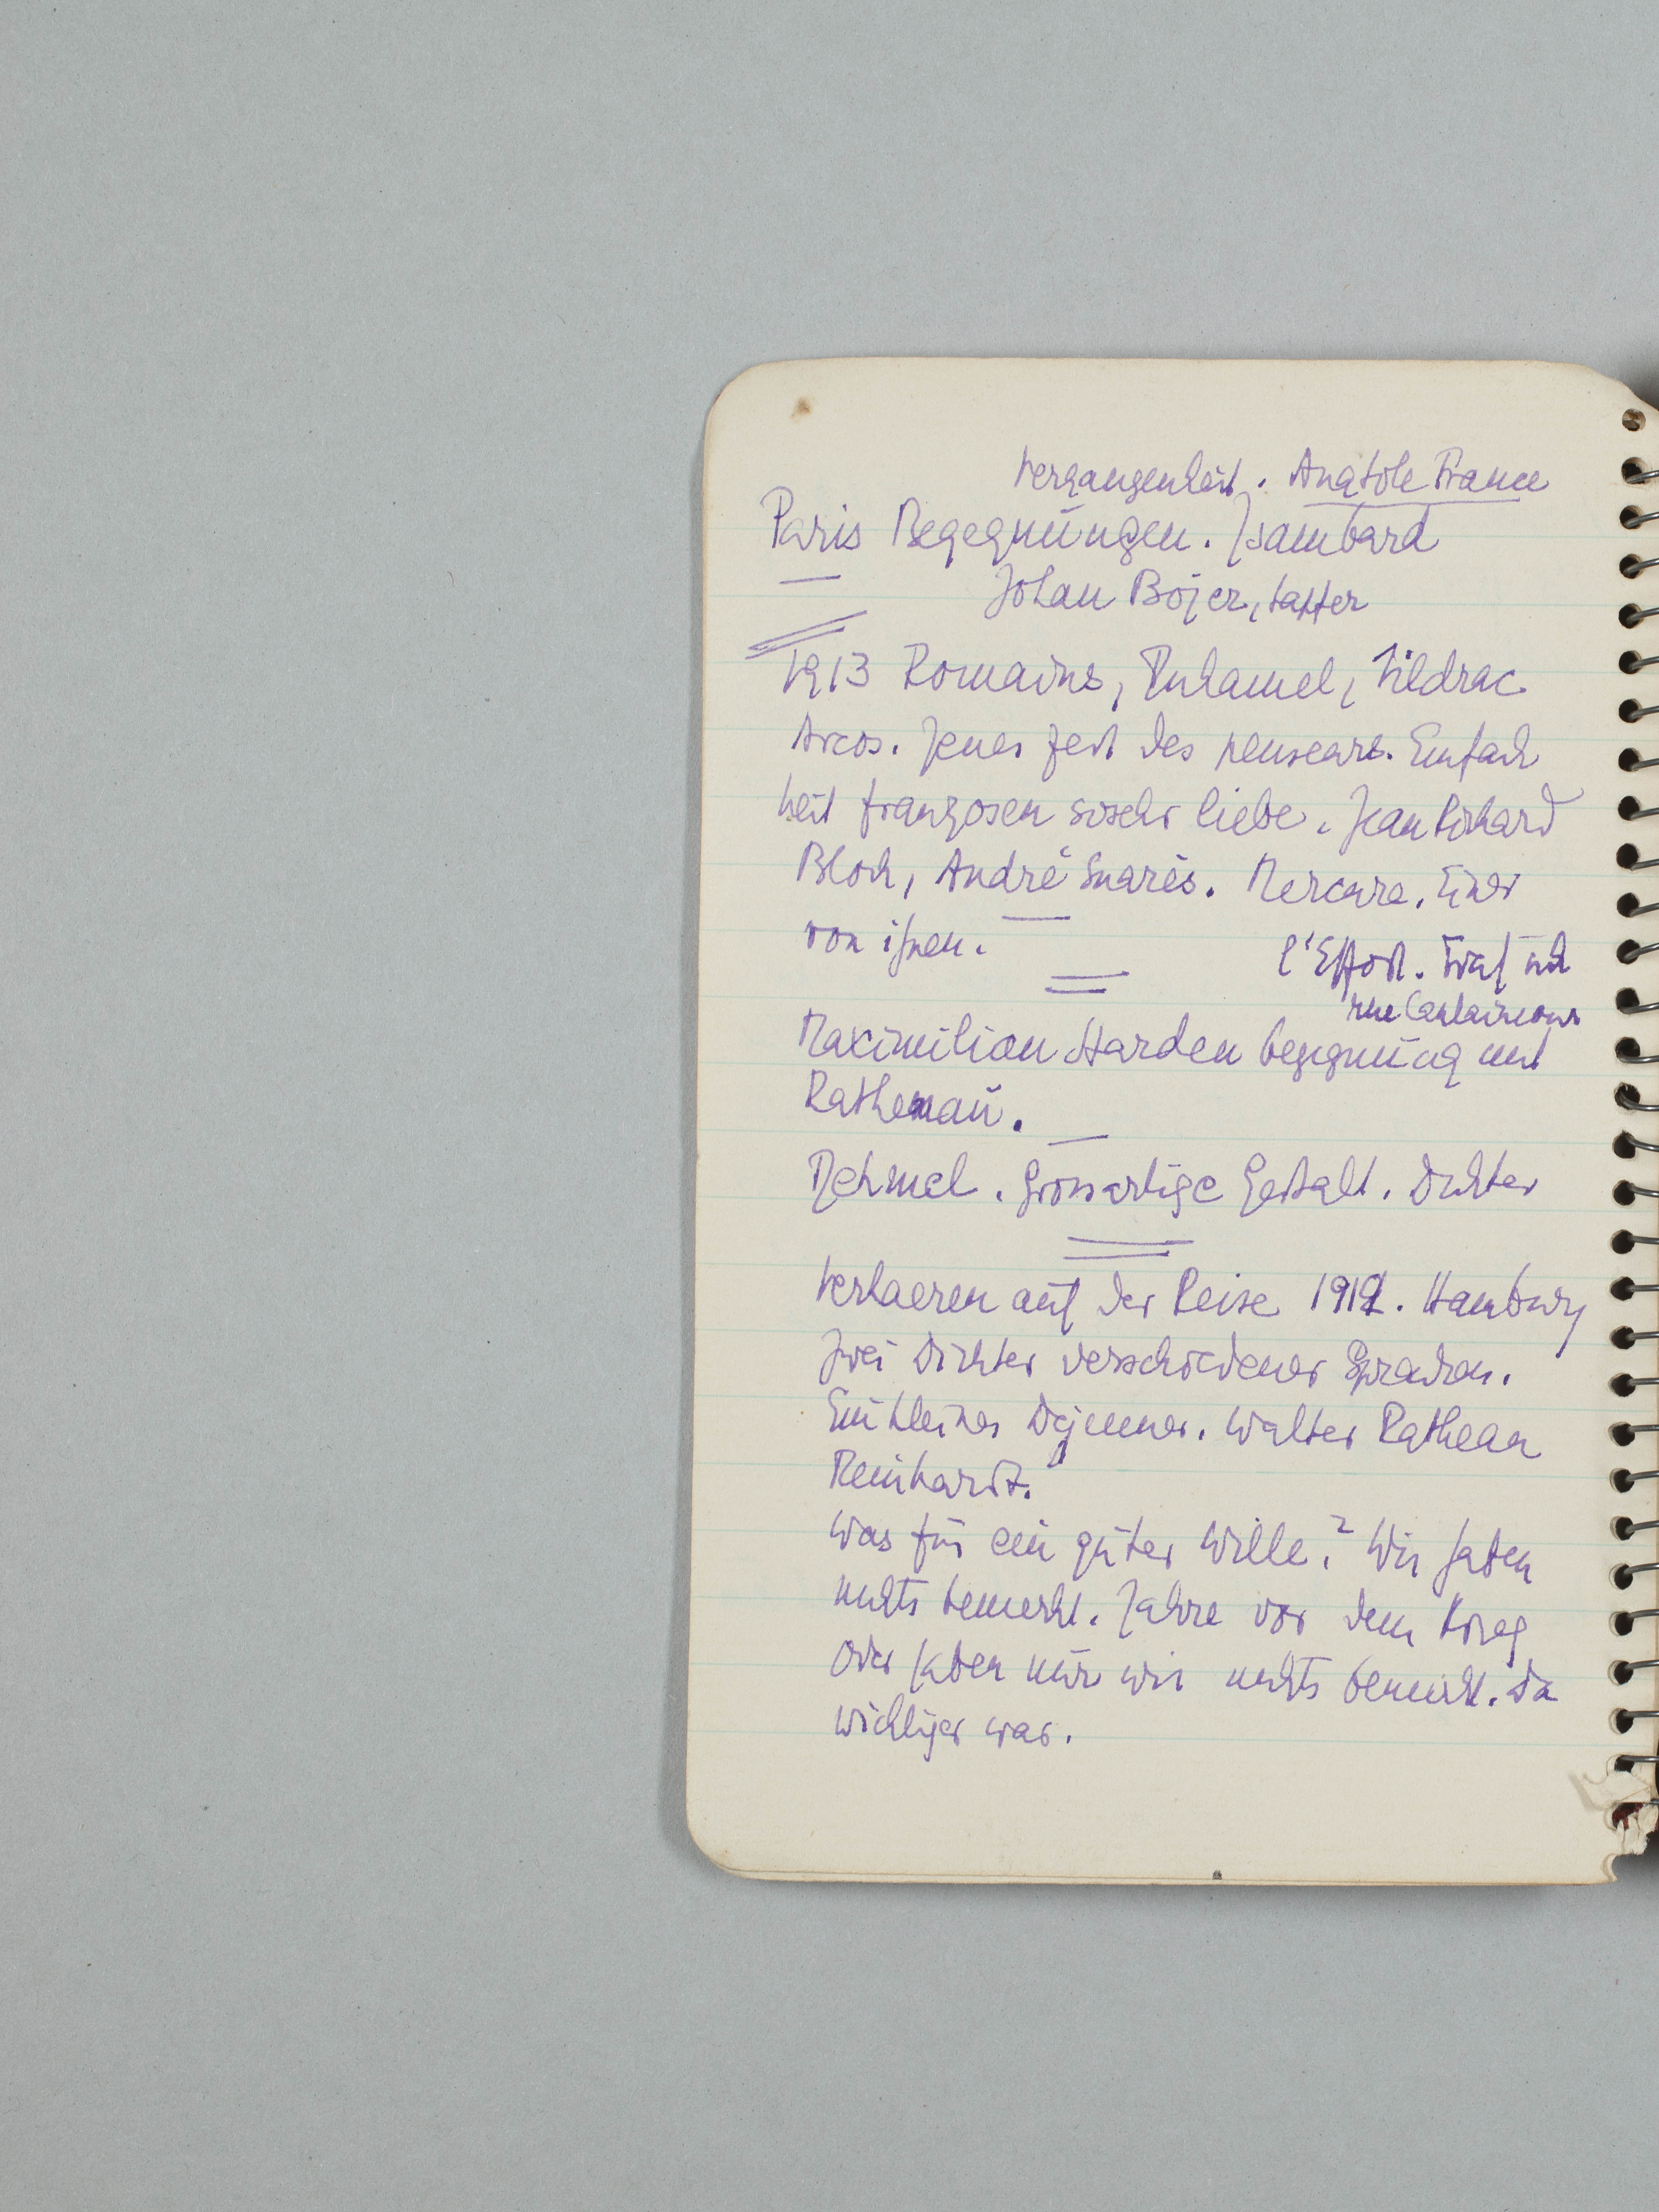 Vergangenheit. Anatole France
Paris Begegnungen. Isambard
Johan Bojer,
1913 Romains, Duhamel, Vildrac
Arcos. Jenes Fest des penseurs. Einfach
heit französischer Liebe. Jean Richard
Bloch, André Suarès. Mercure. Einer
von ihnen.
l'Effort. Traf ich
rue Caulaincourt
Maximilian Harden Begegnung mit
Rathenau.
Dehmel. Grossartige Gestalt. Dichter
Verhaeren auf der Reise 1912. Hamburg
Zwei Dichter verschiedener Sprachen.
Ein kleines Dejeuner. Walter Rathenau
Reinhardt.
Was für ein guter Wille? Wir haben
nichts bemerkt. Jahre vor dem Krieg
Oder haben nur wir nichts bemerkt. Da
wichtiger war.